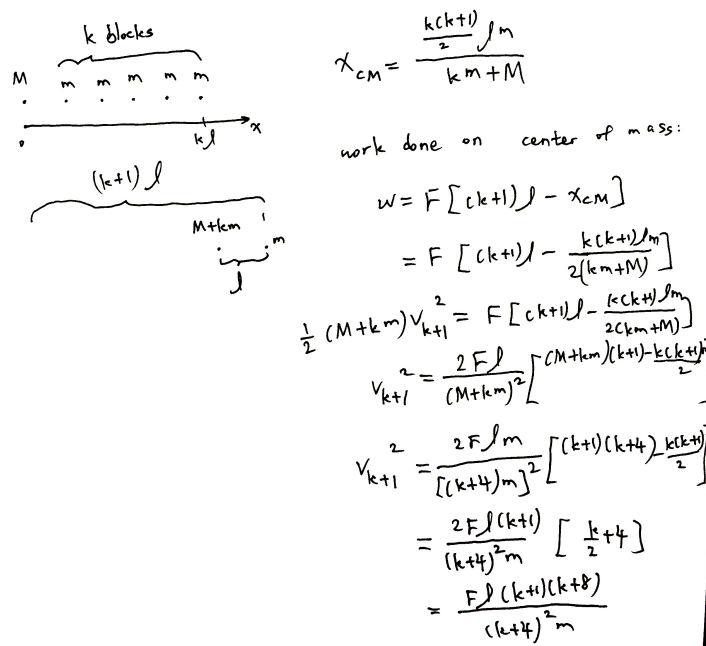 k blocks
M m m m m m
kl x
(k+1) l
M+km
m
l
x_CM = (k(k+1)/2 l m) / (km+M)
work done on center of mass:
W = F[(k+1)l - x_CM]
= F [(k+1)l - k(k+1)lm / 2(km+M)]
1/2 (M+km) v_{k+1}^2 = F[(k+1)l - k(k+1)lm / 2(km+M)]
v_{k+1}^2 = 2Fl / (M+km)^2 [(M+km)(k+1) - k(k+1)m / 2
v_{k+1}^2 = 2Flm / [(k+4)m]^2 [(k+1)(k+4) - k(k+1) / 2]
= 2Fl(k+1) / (k+4)^2 m [k/2 + 4]
= Fl(k+1)(k+8) / (k+4)^2 m